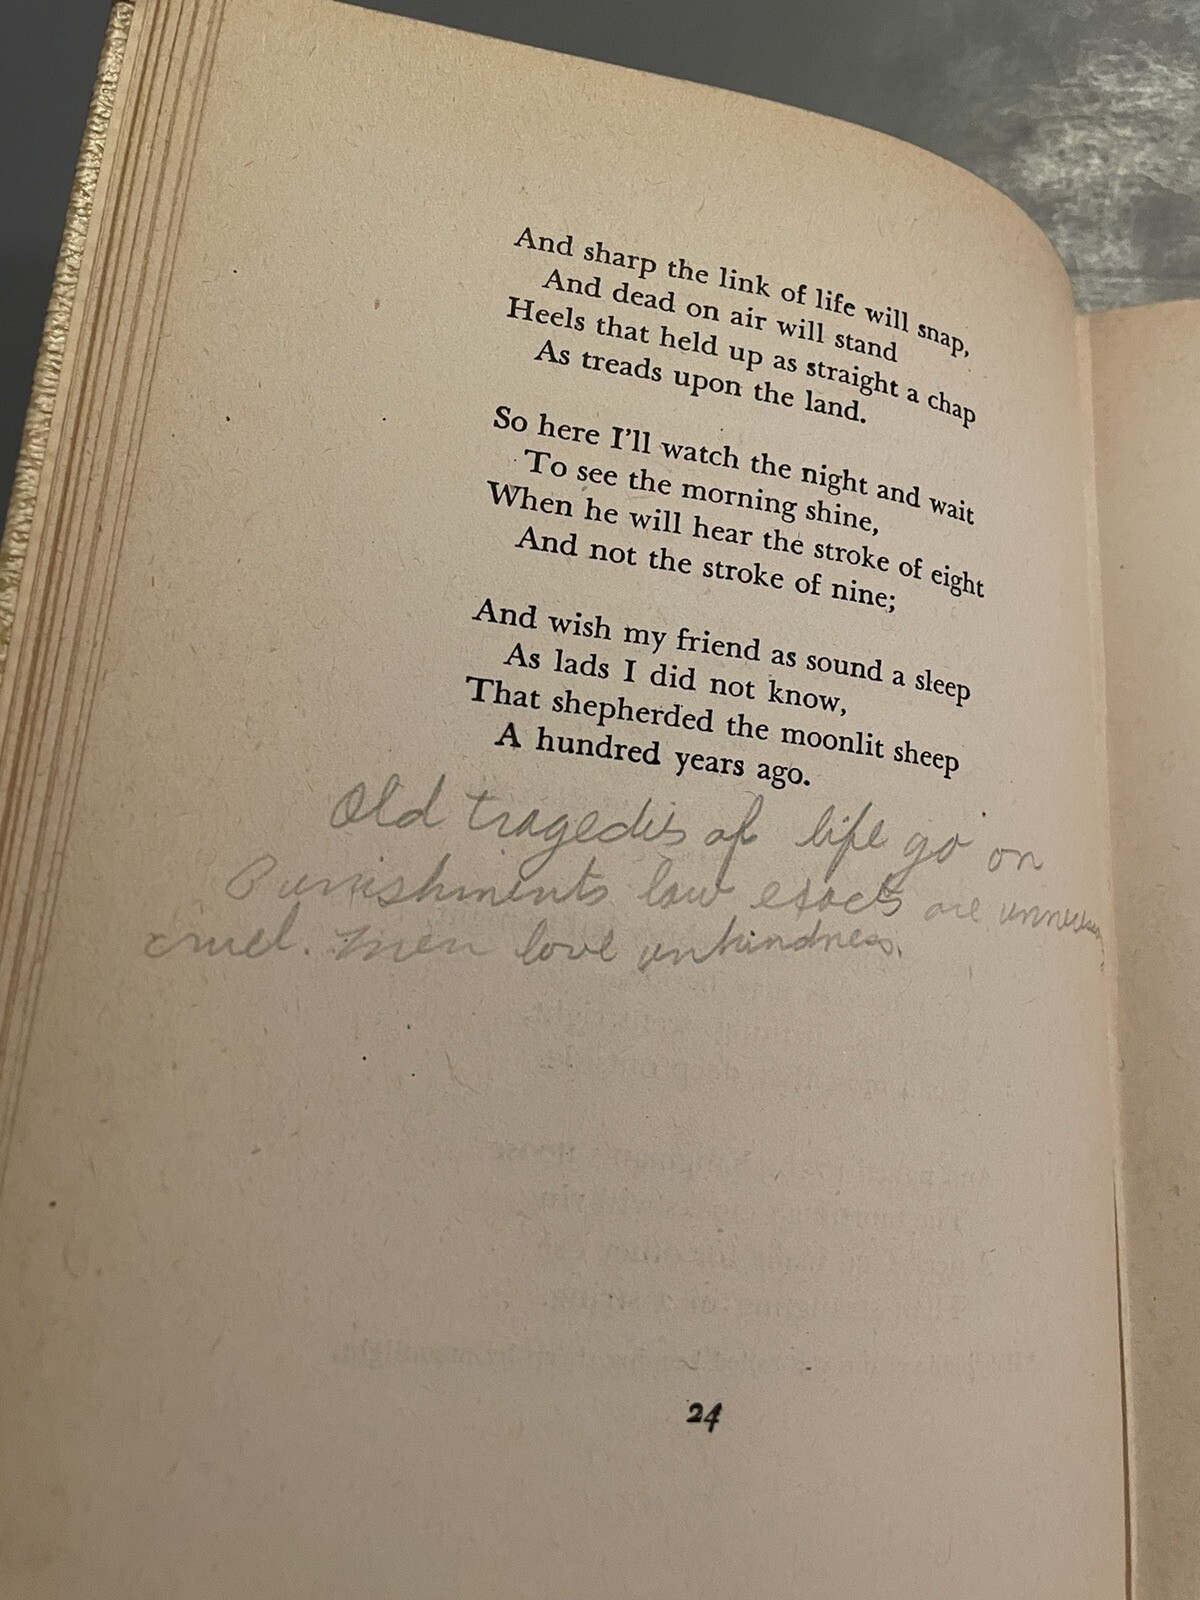 And sharp the link of life will snap,
And dead on air will stand
Heels that held up as straight a chap
As treads upon the land.
So here I'll watch the night and wait
To see the morning shine,
When he will hear the stroke of eight
And not the stroke of nine;
And wish my friend as sound a sleep
As lads I did not know,
That shepherded the moonlit sheep
A hundred years ago.
Old tragedies of life go on
Punishments law exacts are
cruel. Men love unkindness.
24